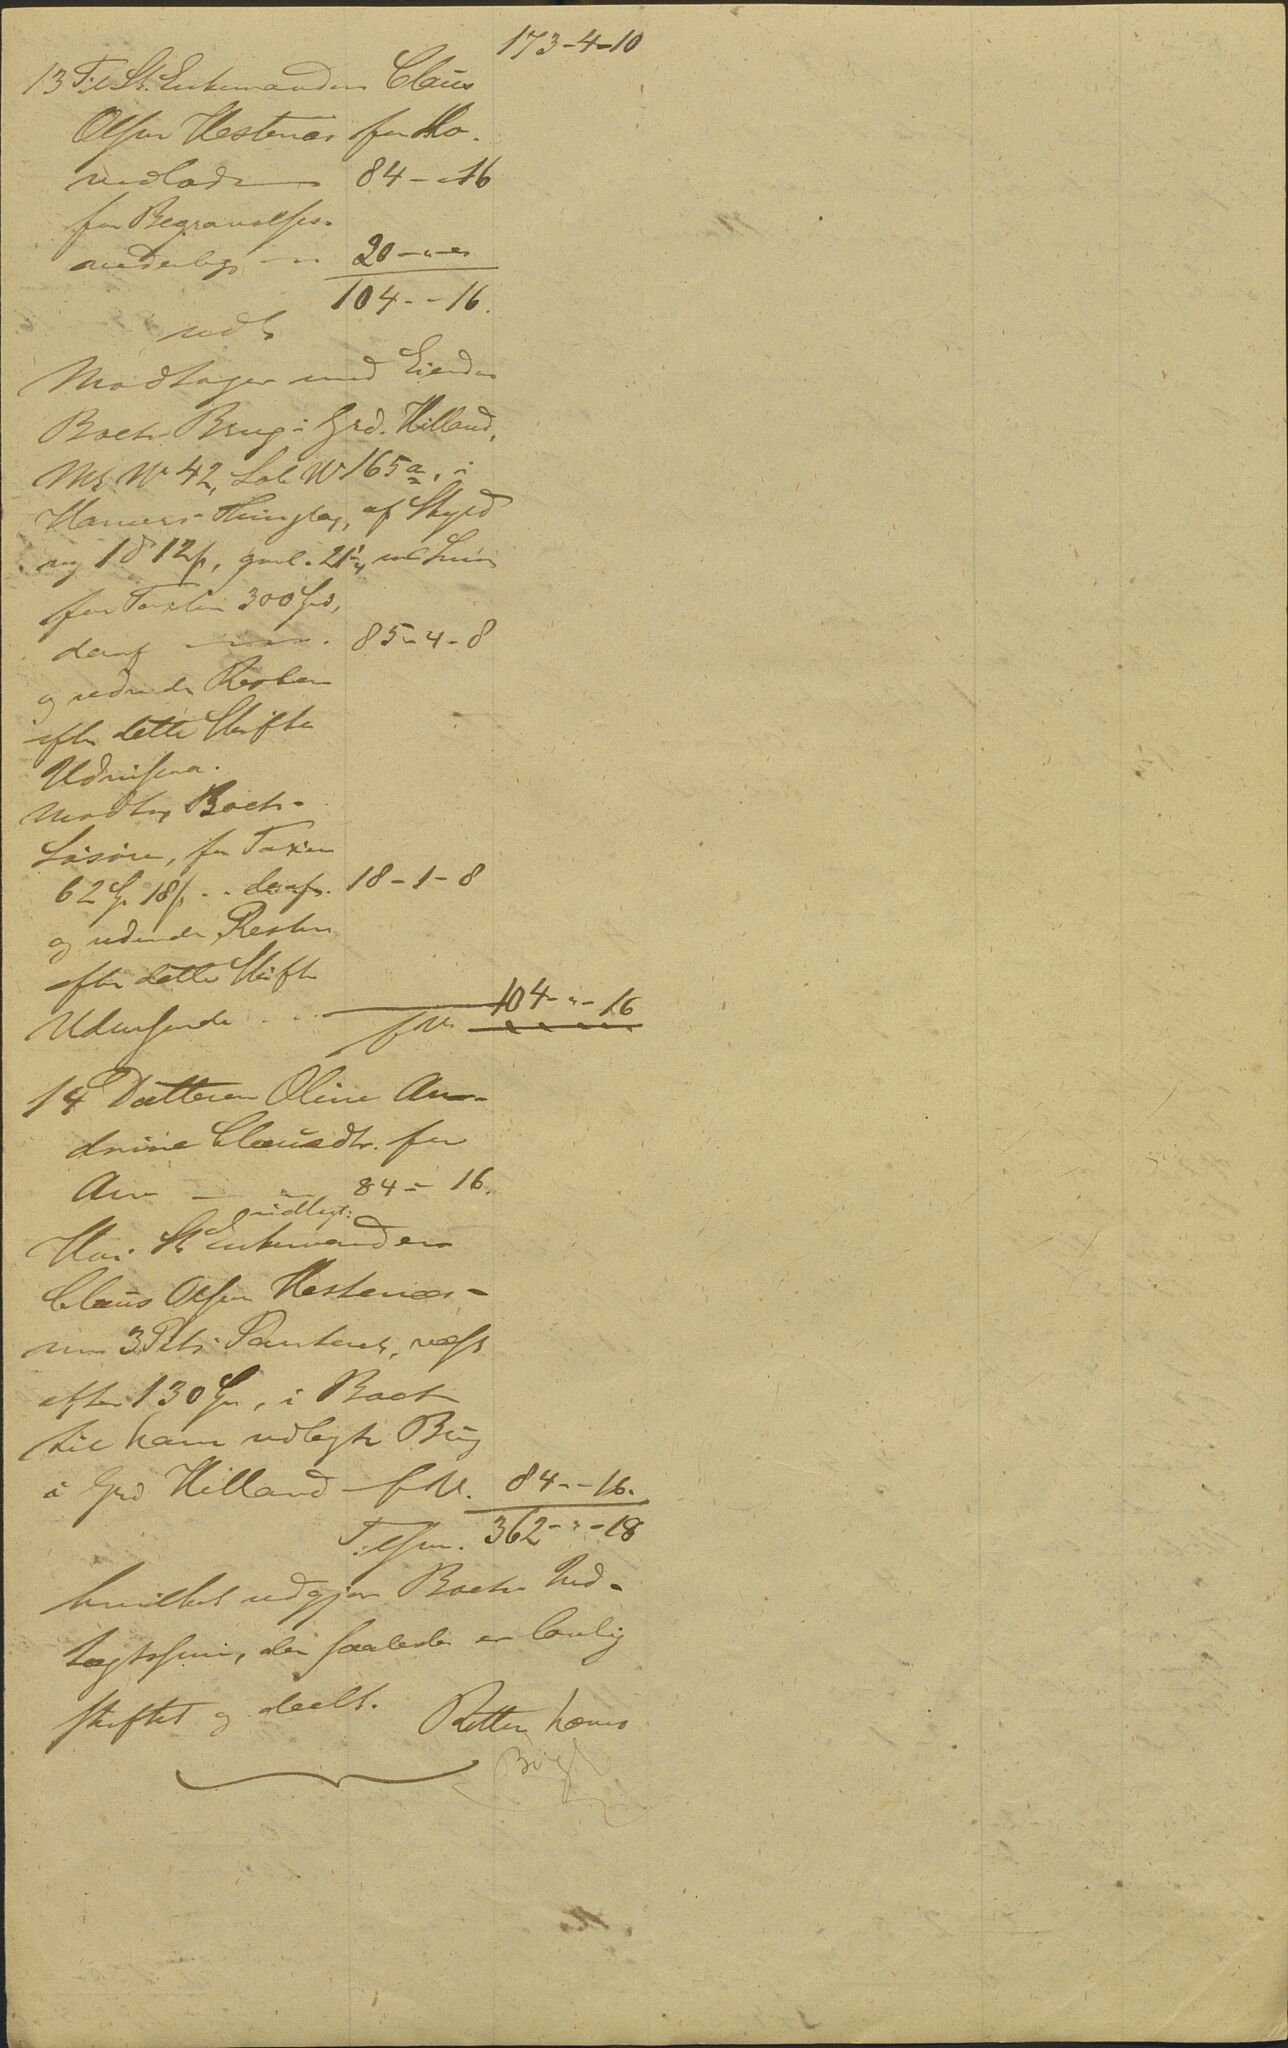 173-4-10
13 Til St. Enkemanden Claus
Olsen Hestenæs for Ho-
vedlod 84-"-16
for Begravelses-
vederlag 20-"-"
104-"-16.
udl.
Modtager med Eiendom
Boets Brug i Grd. Hilland,
Mr. No 42, Lob. No 165 a, i
Hamers Thinglag, af Skyld
ny 1 d 12 s, gml.
for Taxten 300 Spd,
deraf 85-4-8
og Resten
efter dette Skifte
Boets
Løsøre, for Taxten
62 Sp. 18 s. deraf 18-1-8
og Resten
efter dette Skifte
104-"-16
14 Datteren Oline An-
drine Clausdtr. for
Arv 84-"-16.
udlagt:
Hos St. Enkemanden
Claus Olsen Hestenæs
3 Pct. Panteret, næst
efter 130 Spd, i Boets
til ham udlagte Brug
i Grd Hilland 84-"-16.
Tilsm. 362-"-18
hvilket udgjør Boets Ind-
tægtssum, der saaledes er lovlig
skiftet og deelt. Retten hævet